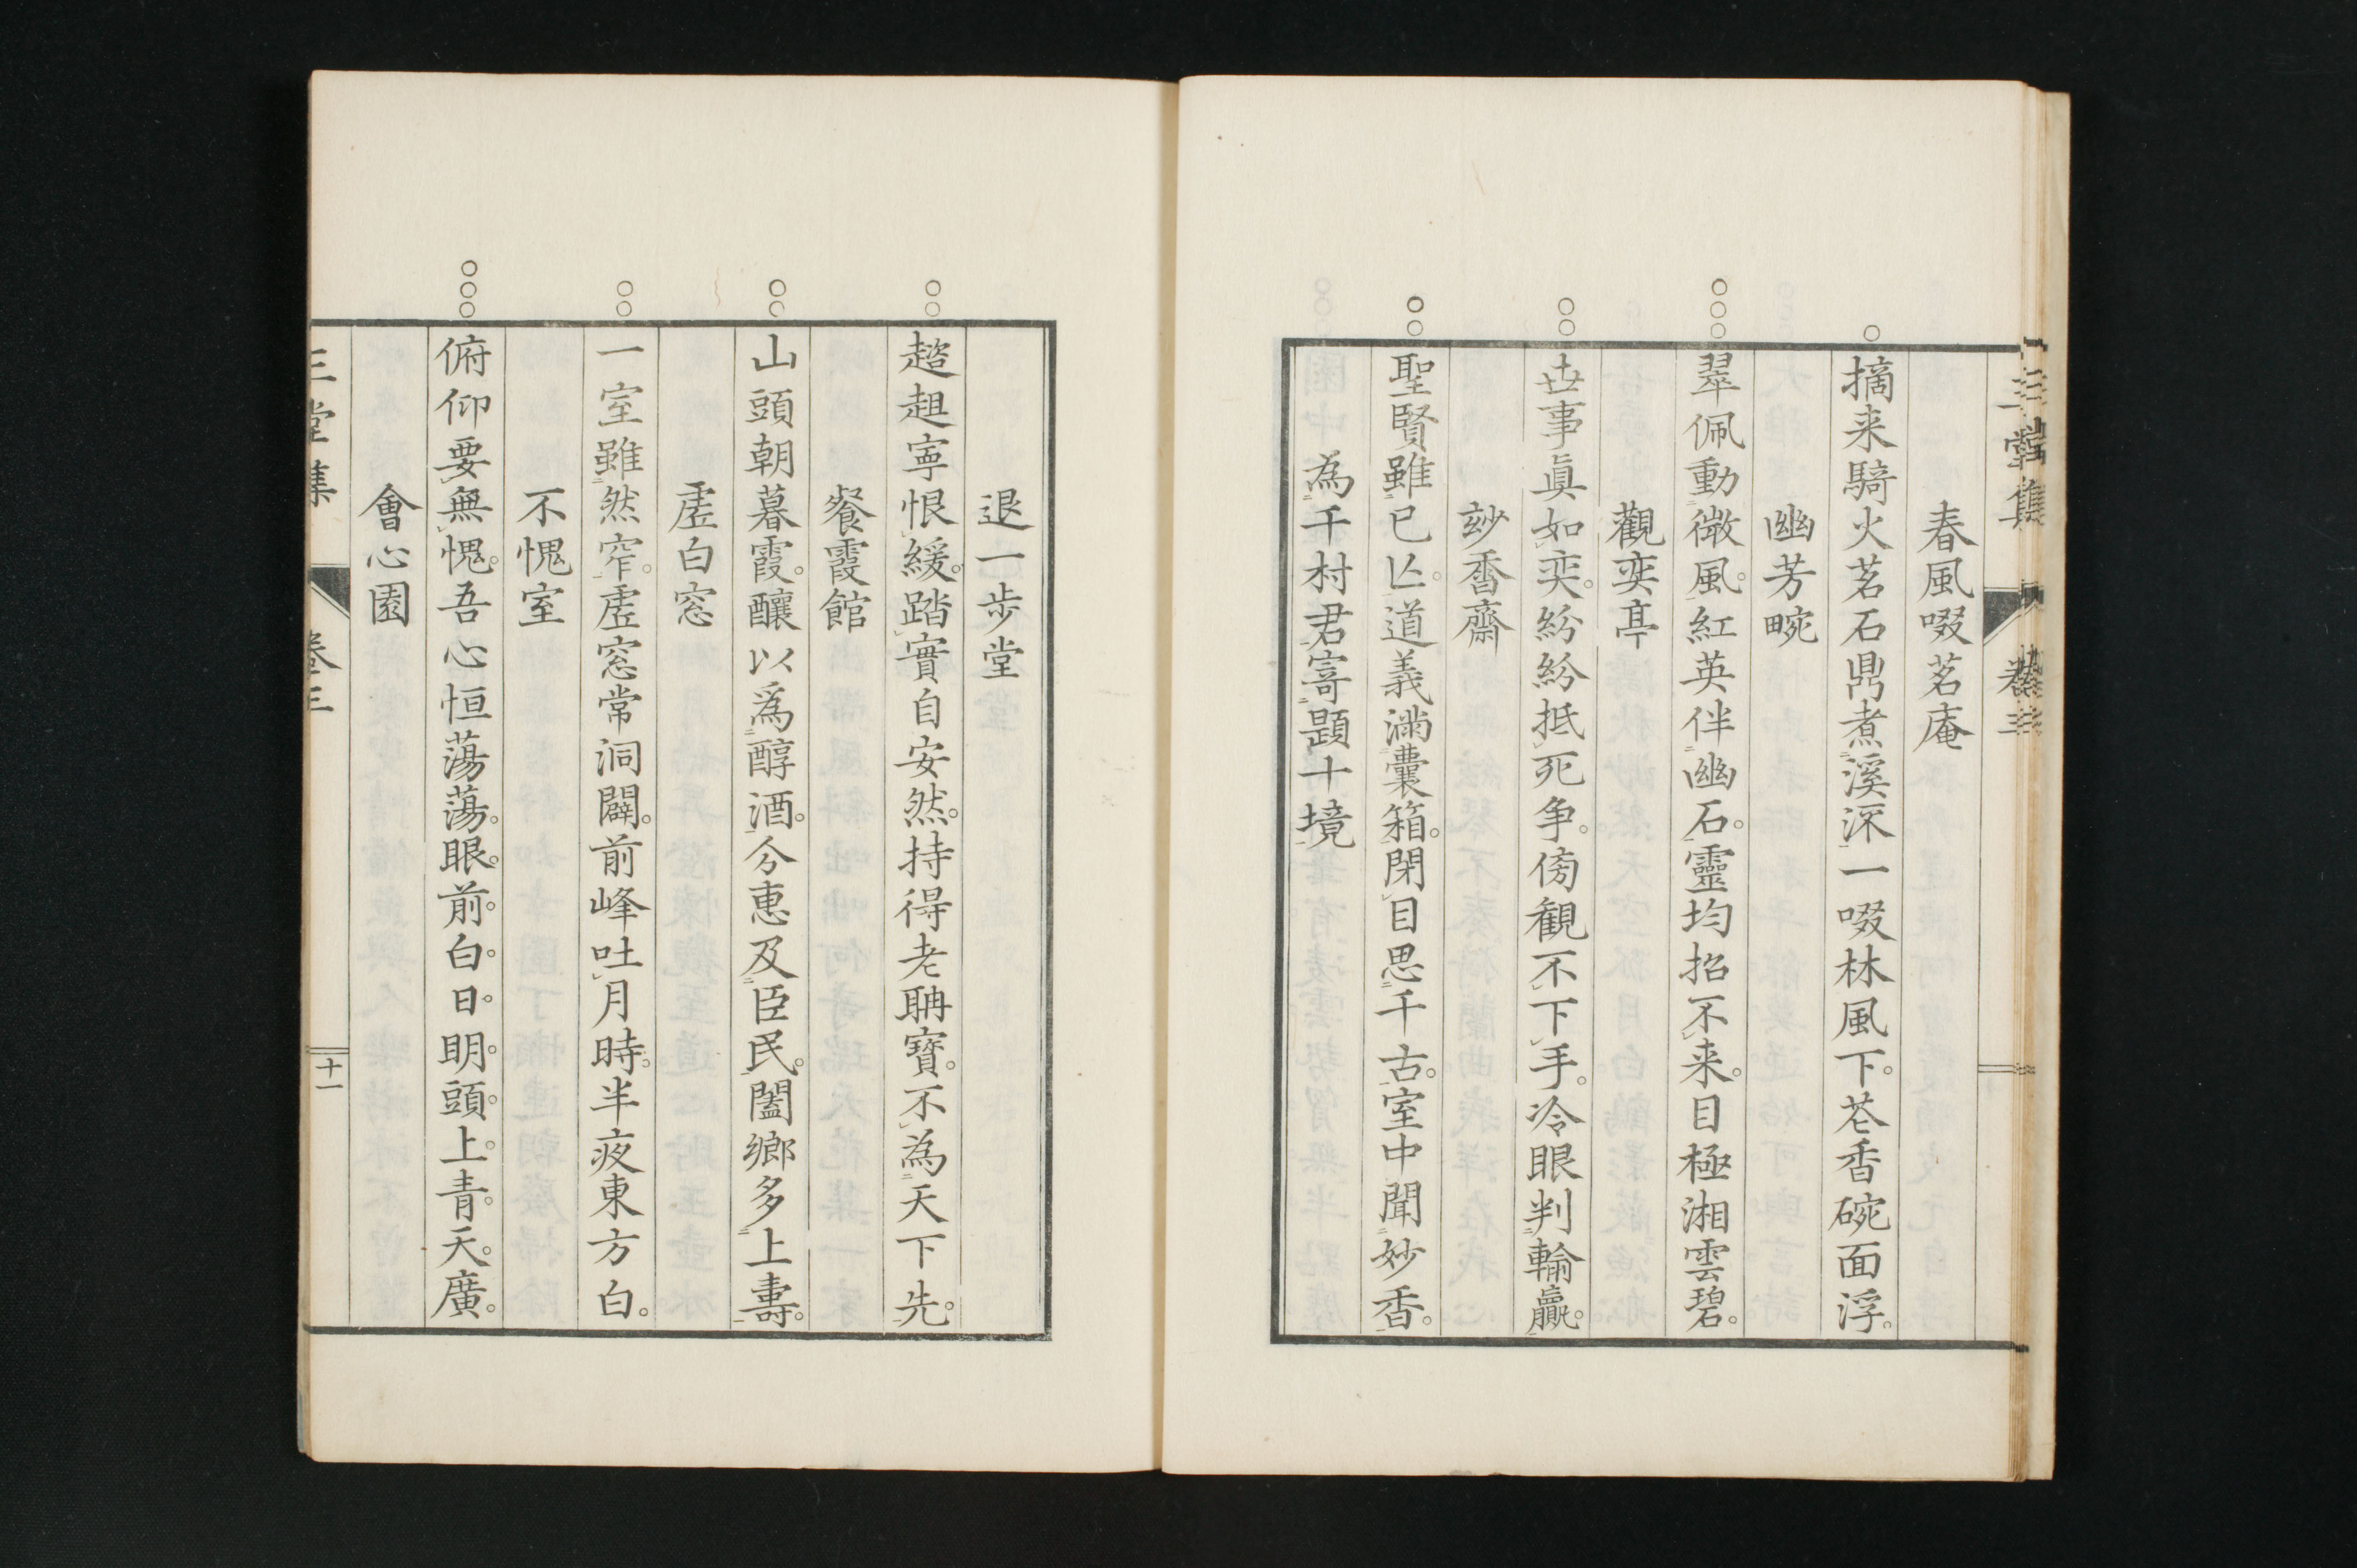 春風啜茗庵
摘来騎火茗石鼎煮溪深一啜林風下花香碗面浮
幽芳畹
翠佩動微風紅英伴幽石靈均招不来目極湘雲碧
觀奕亭
世事眞如奕紛紛抵死争傍観不下手冷眼判輸贏
玅香齋
聖賢雖已亾道義滿囊箱閉目思千古室中聞妙香
為千村君寄題十境
退一歩堂
趦趄寧恨緩踏實自安然持得老聃寶不為天下先
餐霞館
山頭朝暮霞釀以爲醇酒分惠及臣民闔鄉多上壽
虛白窓
一室雖然窄虛窓常洞闢前峰吐月時半夜東方白
不愧室
俯仰要無愧吾心恒蕩蕩眼前白日明頭上青天廣
會心園
三堂集
卷三
十一